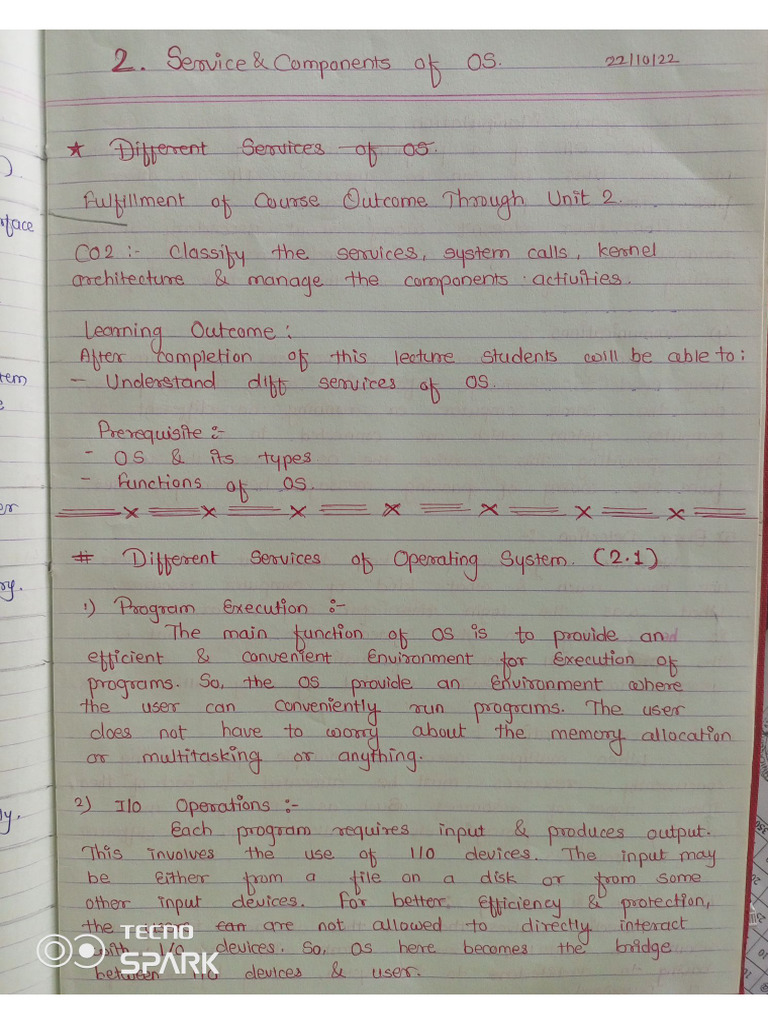 2. Service & Components of OS. 22/10/22
★ Different Services of OS.
Fulfillment of Course Outcome Through Unit 2.
CO2 :- Classify the services, system calls, kernel
architecture & manage the components activities.
Learning Outcome :
After completion of this lecture students will be able to :
- Understand diff services of OS.
Prerequisite :-
- OS & its types
- Functions of OS.
# Different Services of Operating System. (2.1)
1) Program Execution :-
The main function of OS is to provide an
efficient & convenient Environment for Execution of
programs. So, the OS provide an Environment where
the user can conveniently run programs. The user
does not have to worry about the memory allocation
or multitasking or anything.
2) I/O Operations :-
Each program requires input & produces output.
This involves the use of I/O devices. The input may
be Either from a file on a disk or from some
other input devices. For better Efficiency & protection,
the users can are not allowed to directly interact
with I/O devices. So, OS here becomes the bridge
between I/O devices & user.
TECNO
SPARK
rface
).
tem
e
er
ry.
ly.